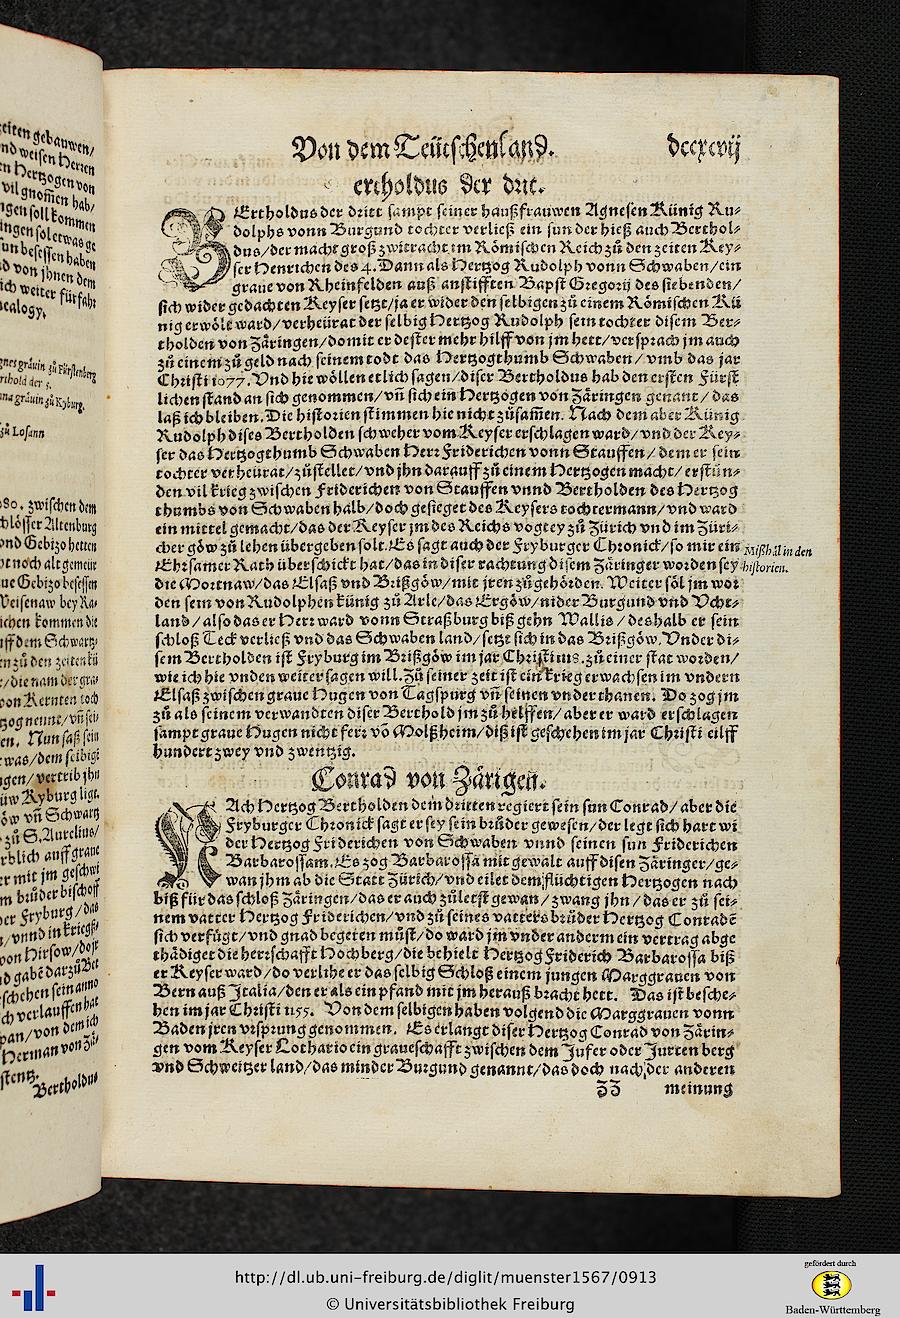 Von dem Teütschenland. dccxcvij
ertholdus der drit.
BErtholdus der dritt sampt seiner haußfrauwen Agnesen Künig Ru-
dolphs vonn Burgund tochter verließ ein sun der hieß auch Berthol-
dus/der macht groß zwitracht im Römischen Reich zů den zeiten Key-
ser Henrichen des 4. Dann als Hertzog Rudolph vonn Schwaben/ein
graue von Rheinfelden auß anstifften Bapst Gregorij des siebenden/
sich wider gedachten Keyser setzt/ja er wider den selbigen zů einem Römischen Kü
nig erwölt ward/verheürat der selbig Hertzog Rudolph sein tochter disem Ber-
tholden von Zäringen/domit er dester mehr hilff von jm hett/versprach jm auch
zů einem zů geld nach seinem todt das Hertzogthumb Schwaben/vmb das jar
Christi 1077. Vnd hie wöllen etlich sagen/diser Bertholdus hab den ersten Fürst
lichen stand an sich genommen/vñ sich ein Hertzogen von Zäringen genant/das
laß ich bleiben. Die historien stimmen hie nicht zůsam̃en. Nach dem aber Künig
Rudolph dises Bertholden schweher vom Keyser erschlagen ward/vnd der Key-
ser das Hertzogthumb Schwaben Herr Friderichen vonn Stauffen/dem er sein
tochter verheürat/zůstellet/vnd jhn darauff zů einem Hertzogen macht/erstůn-
den vil krieg zwischen Friderichen von Stauffen vnnd Bertholden des Hertzog
thumbs von Schwaben halb/doch gesieget des Keysers tochtermann/vnd ward
ein mittel gemacht/das der Keyser jm des Reichs vogtey zů Zürich vnd im Züri-
cher göw zů lehen übergeben solt. Es sagt auch der Fryburger Chronick/so mir ein
Ehrsamer Rath überschickt hat/das in diser rachtung disem Zäringer worden sey
die Mortnaw/das Elsaß vnd Brißgöw/mit jren zůgehörden. Weiter söl jm wor
den sein von Rudolphen künig zů Arle/das Ergöw/nider Burgund vnd Vcht-
land/also das er Herr ward vonn Straßburg biß gehn Wallis/deshalb er sein
schloß Teck verließ vnd das Schwaben land/setzt sich in das Brißgöw. Vnder di-
sem Bertholden ist Fryburg im Brißgöw im jar Christi zů einer stat worden/
wie ich hie vnden weiter sagen will. Zů seiner zeit ist ein krieg erwachsen im vndern
Elsaß zwischen graue Hugen von Tagspurg vñ seinen vnderthanen. Do zog jm
zů als seinem verwandten diser Berthold jm zů helffen/aber er ward erschlagen
sampt graue Hugen nicht ferz võ Molßheim/diß ist geschehen im jar Christi eilff
hundert zwey vnd zwentzig.
Mißhäl in den
historien.
Conrad von Zärigen.
NAch Hertzog Bertholden dem dritten regiert sein sun Conrad/aber die
Fryburger Chronick sagt er sey sein brůder gewesen/der legt sich hart wi
der Hertzog Friderichen von Schwaben vnnd seinen sun Friderichen
Barbarossam. Es zog Barbarossa mit gewalt auff disen Zäringer/ge-
wan jhm ab die Statt Zürich/vnd eilet dem flüchtigen Hertzogen nach
biß für das schloß Zäringen/das er auch zůletst gewan/zwang jhn/das er zů sei-
nem vatter Hertzog Friderichen/vnd zů seines vatters brůder Hertzog Conradẽ
sich verfügt/vnd gnad begeren můst/do ward jm vnder anderm ein vertrag abge
thädiget die herrschafft Hochberg/die behielt Hertzog Friderich Barbarossa biß
er Keyser ward/do verlihe er das selbig Schloß einem jungen Marggrauen von
Bern auß Italia/den er als ein pfand mit jm herauß bracht hett. Das ist besche-
hen im jar Christi 1155. Von dem selbigen haben volgend die Marggrauen vonn
Baden jren vrsprung genommen. Es erlangt diser Hertzog Conrad von Zärin-
gen vom Keyser Lothario ein graueschafft zwischen dem Jufer oder Jurten berg
vnd Schweitzer land/das minder Burgund genannt/das doch nach der anderen
ZZ meinung
zeiten gebauwen/
nd weisen Herren
n Hertzogen von
vil gnom̃en hab/
gen soll kommen
ingen sol etwas ge
un besessen haben
d von jhnen dem
ich weiter fürfahr
nealogy.
gnes gräuin zů Fürstenberg
rthold der 5.
nna gräuin zů Kyburg.
zů Losann
080. zwischen dem
chlösser Altenburg
vnd Gebizo hetten
ot noch alt gemeür
ue Gebizo besessen
Weisenaw bey Ra-
ichen kommen die
uff dem Schwartz-
n zů den zeiten kü
/die nam der gra-
von Kernten toch
zog nennt/vñ sein
en. Nun saß sein
was/dem selbigē
ngen/vertrib jhn
üw Kyburg ligt.
öw vñ Schwartz
zů S. Aurelius/
rblich auff graue
er mit jm geschwi
m brůder bischoff
der Fryburg/das
/vnnd in kriegß-
von Hirsow/dosr
d gabē darzů Ber
schehen sein anno
ch verlauffen hat
pan/von dem ich
Herman von Zä-
stentz.
Bertholdus
http://dl.ub.uni-freiburg.de/diglit/muenster1567/0913
© Universitätsbibliothek Freiburg
gefördert durch
Baden-Württemberg